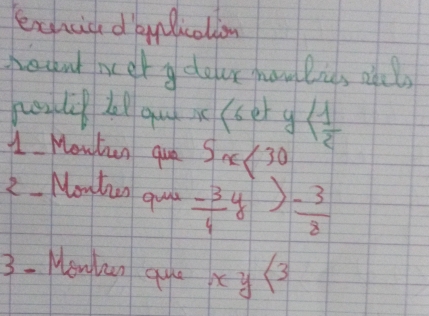 Exercice d'application
soient x et y deux nombres réels
positif tel que x < 6 et y < 1/2
1 - Montrer que 5x < 30
2 - Montrer que -3/4 y > -3/8
3 - Montrer que xy < 3